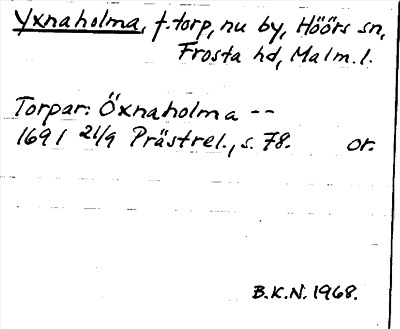 Yxnaholma, f.torp, nu by, Höörs sn,
Frosta hd, Malm. l.
Torpar: Öxnaholma --
1691 21/9 Prästrel., s. 78. or.
B.K.N. 1968.